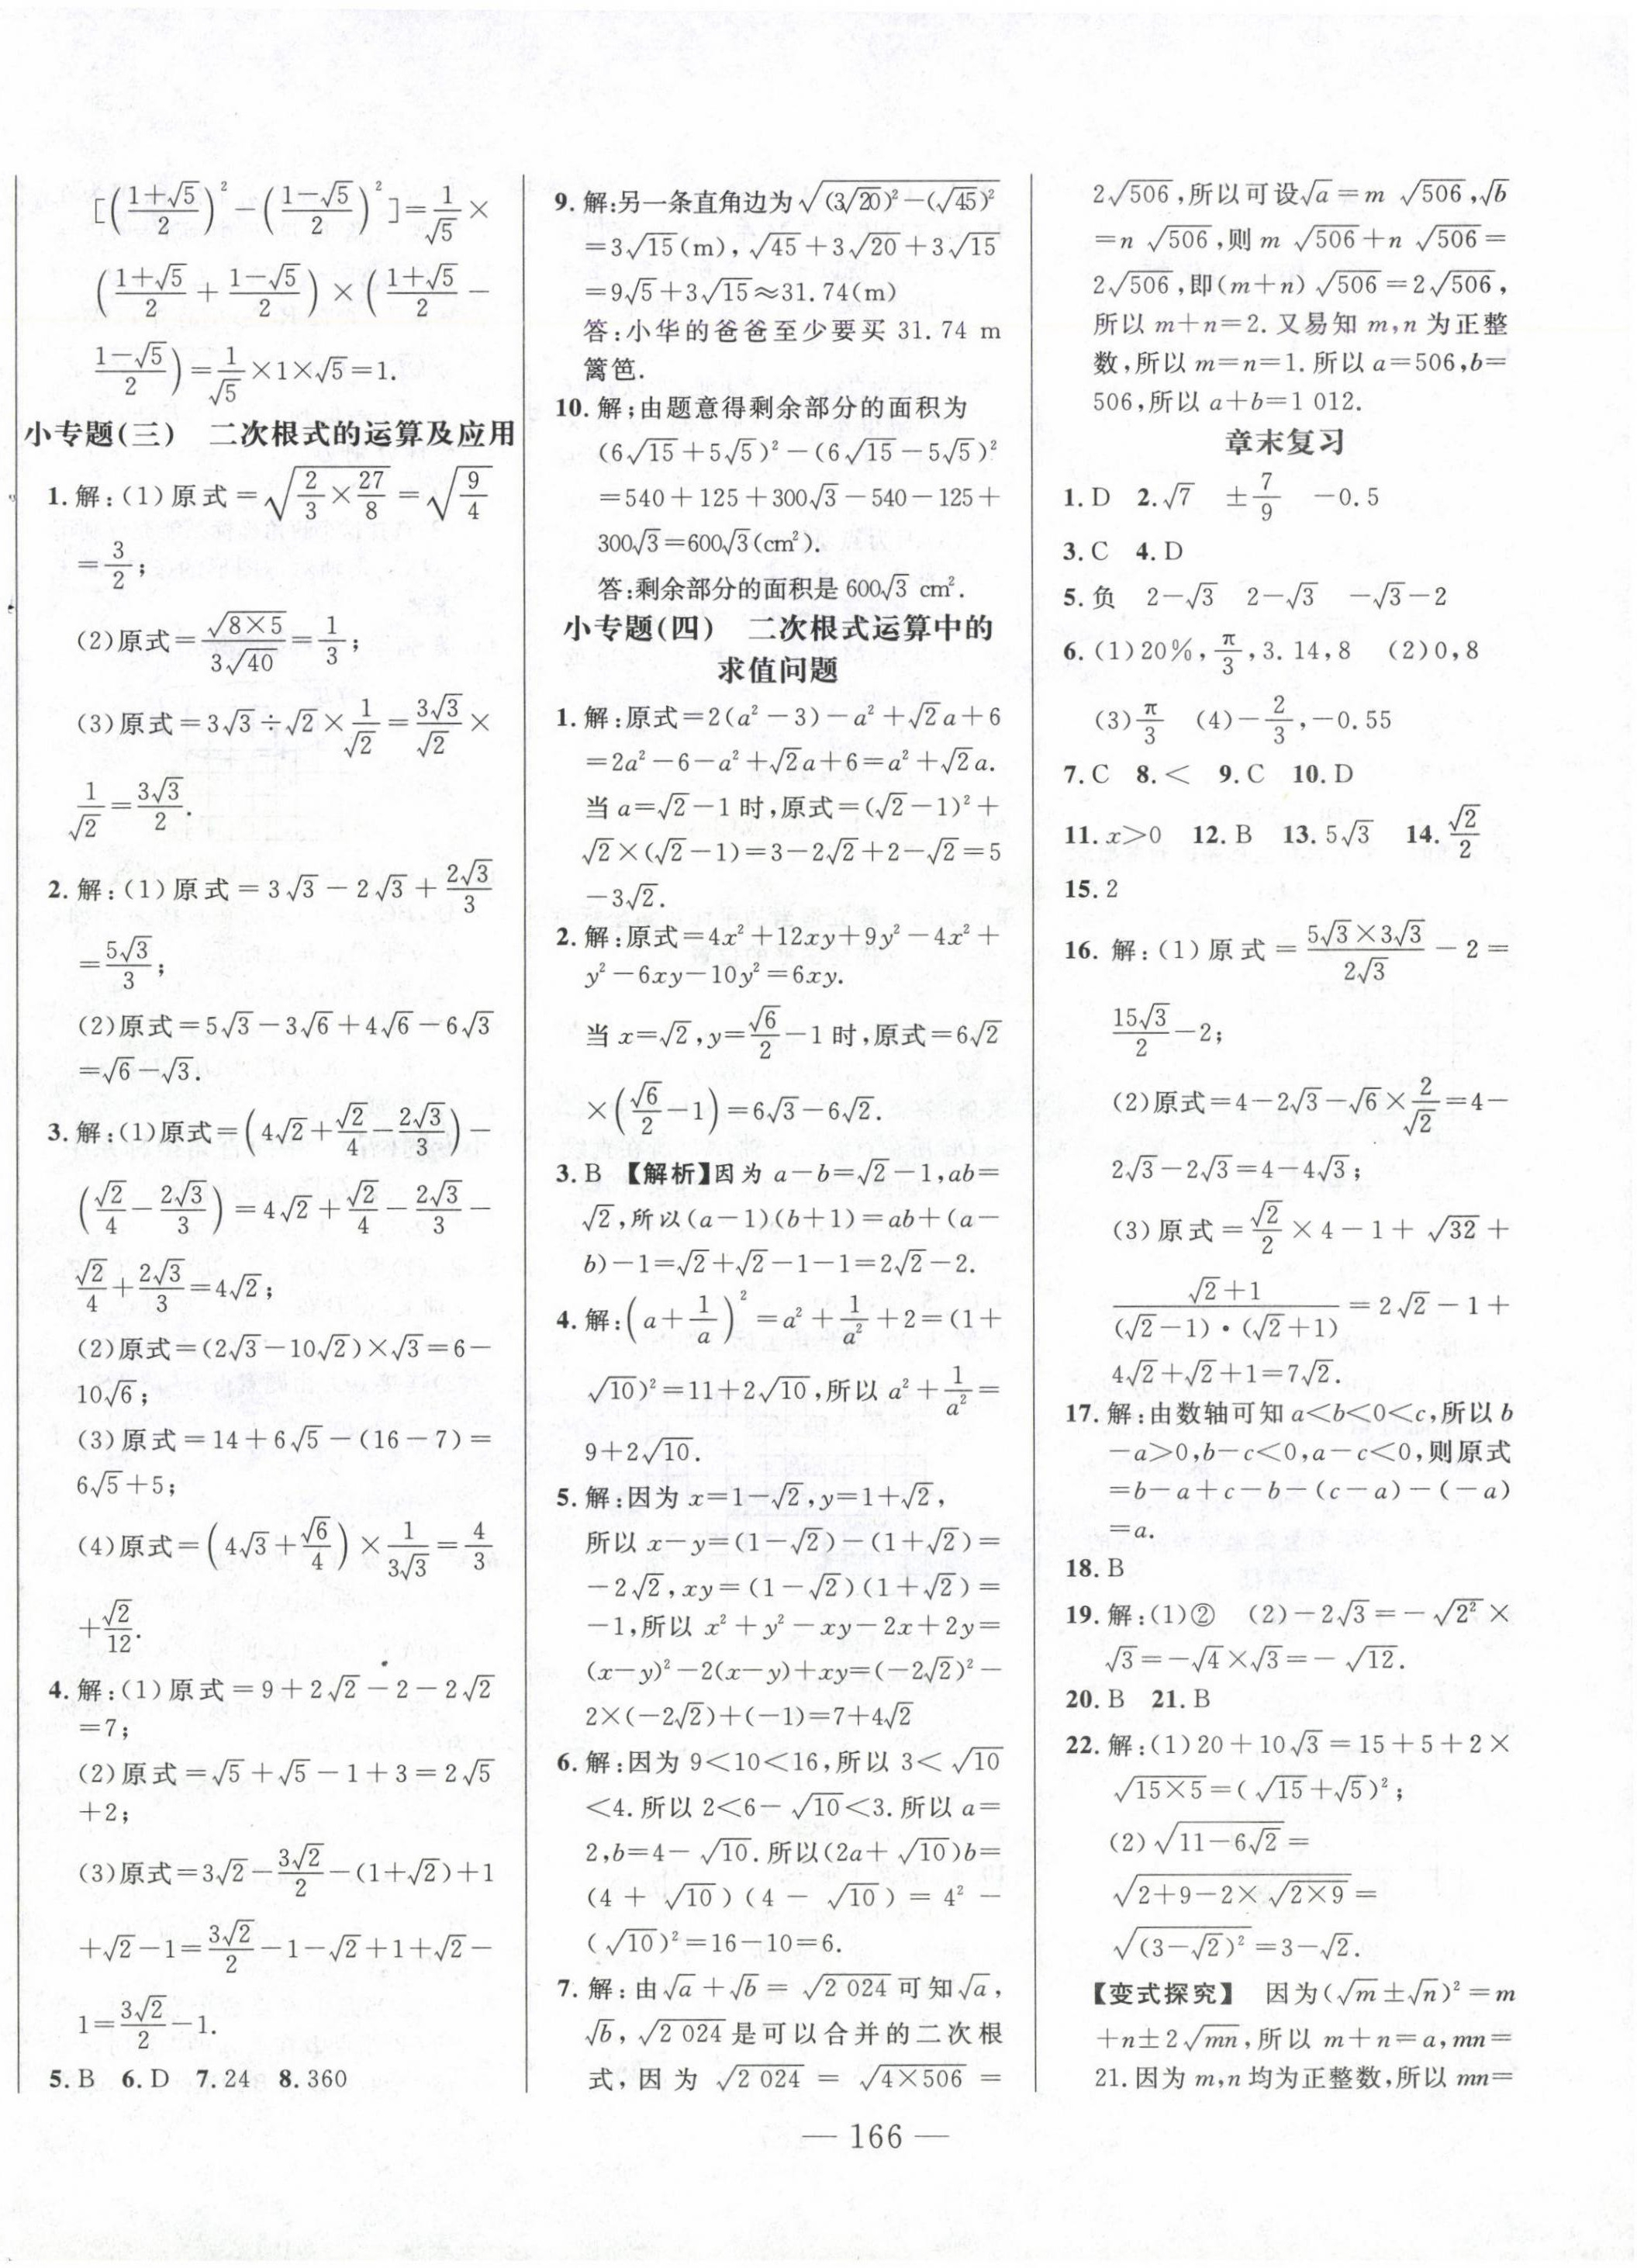 [((1+√5)/2)²−((1−√5)/2)²]=1/√5×
((1+√5)/2+(1−√5)/2)×((1+√5)/2−
(1−√5)/2)=1/√5×1×√5=1.
小专题(三) 二次根式的运算及应用
1.解:(1)原式=√(2/3×27/8)=√(9/4)
=3/2;
(2)原式=√(8×5)/(3√40)=1/3;
(3)原式=3√3÷√2×1/√2=3√3/√2×
1/√2=3√3/2.
2.解:(1)原式=3√3−2√3+2√3/3
=5√3/3;
(2)原式=5√3−3√6+4√6−6√3
=√6−√3.
3.解:(1)原式=(4√2+√2/4−2√3/3)−
(√2/4−2√3/3)=4√2+√2/4−2√3/3−
√2/4+2√3/3=4√2;
(2)原式=(2√3−10√2)×√3=6−
10√6;
(3)原式=14+6√5−(16−7)=
6√5+5;
(4)原式=(4√3+√6/4)×1/(3√3)=4/3
+√2/12.
4.解:(1)原式=9+2√2−2−2√2
=7;
(2)原式=√5+√5−1+3=2√5
+2;
(3)原式=3√2−3√2/2−(1+√2)+1
+√2−1=3√2/2−1−√2+1+√2−
1=3√2/2−1.
5.B 6.D 7.24 8.360
9.解:另一条直角边为√((3√20)²−(√45)²)
=3√15(m),√45+3√20+3√15
=9√5+3√15≈31.74(m)
答:小华的爸爸至少要买 31.74 m
篱笆.
10.解;由题意得剩余部分的面积为
(6√15+5√5)²−(6√15−5√5)²
=540+125+300√3−540−125+
300√3=600√3(cm²).
答:剩余部分的面积是 600√3 cm².
小专题(四) 二次根式运算中的
求值问题
1.解:原式=2(a²−3)−a²+√2a+6
=2a²−6−a²+√2a+6=a²+√2a.
当 a=√2−1 时,原式=(√2−1)²+
√2×(√2−1)=3−2√2+2−√2=5
−3√2.
2.解:原式=4x²+12xy+9y²−4x²+
y²−6xy−10y²=6xy.
当 x=√2,y=√6/2−1 时,原式=6√2
×(√6/2−1)=6√3−6√2.
3.B 【解析】因为 a−b=√2−1,ab=
√2,所以(a−1)(b+1)=ab+(a−
b)−1=√2+√2−1−1=2√2−2.
4.解:(a+1/a)²=a²+1/a²+2=(1+
√10)²=11+2√10,所以 a²+1/a²=
9+2√10.
5.解:因为 x=1−√2,y=1+√2,
所以 x−y=(1−√2)−(1+√2)=
−2√2,xy=(1−√2)(1+√2)=
−1,所以 x²+y²−xy−2x+2y=
(x−y)²−2(x−y)+xy=(−2√2)²−
2×(−2√2)+(−1)=7+4√2
6.解:因为 9<10<16,所以 3<√10
<4.所以 2<6−√10<3.所以 a=
2,b=4−√10.所以(2a+√10)b=
(4+√10)(4−√10)=4²−
(√10)²=16−10=6.
7.解:由√a+√b=√2 024可知√a,
√b,√2 024是可以合并的二次根
式,因为√2 024=√(4×506)=
2√506,所以可设√a=m√506,√b
=n√506,则 m√506+n√506=
2√506,即(m+n)√506=2√506,
所以 m+n=2.又易知 m,n 为正整
数,所以 m=n=1.所以 a=506,b=
506,所以 a+b=1 012.
章末复习
1.D 2.√7 ±7/9 −0.5
3.C 4.D
5.负 2−√3 2−√3 −√3−2
6.(1)20%,π/3,3.14,8 (2)0,8
(3)π/3 (4)−2/3,−0.55
7.C 8.< 9.C 10.D
11.x>0 12.B 13.5√3 14.√2/2
15.2
16.解:(1)原式=(5√3×3√3)/(2√3)−2=
15√3/2−2;
(2)原式=4−2√3−√6×2/√2=4−
2√3−2√3=4−4√3;
(3)原式=√2/2×4−1+√32+
(√2+1)/((√2−1)·(√2+1))=2√2−1+
4√2+√2+1=7√2.
17.解:由数轴可知 a<b<0<c,所以 b
−a>0,b−c<0,a−c<0,则原式
=b−a+c−b−(c−a)−(−a)
=a.
18.B
19.解:(1)② (2)−2√3=−√2²×
√3=−√4×√3=−√12.
20.B 21.B
22.解:(1)20+10√3=15+5+2×
√(15×5)=(√15+√5)²;
(2)√(11−6√2)=
√(2+9−2×√(2×9))=
√((3−√2)²)=3−√2.
【变式探究】 因为(√m±√n)²=m
+n±2√mn,所以 m+n=a,mn=
21.因为 m,n 均为正整数,所以 mn=
— 166 —